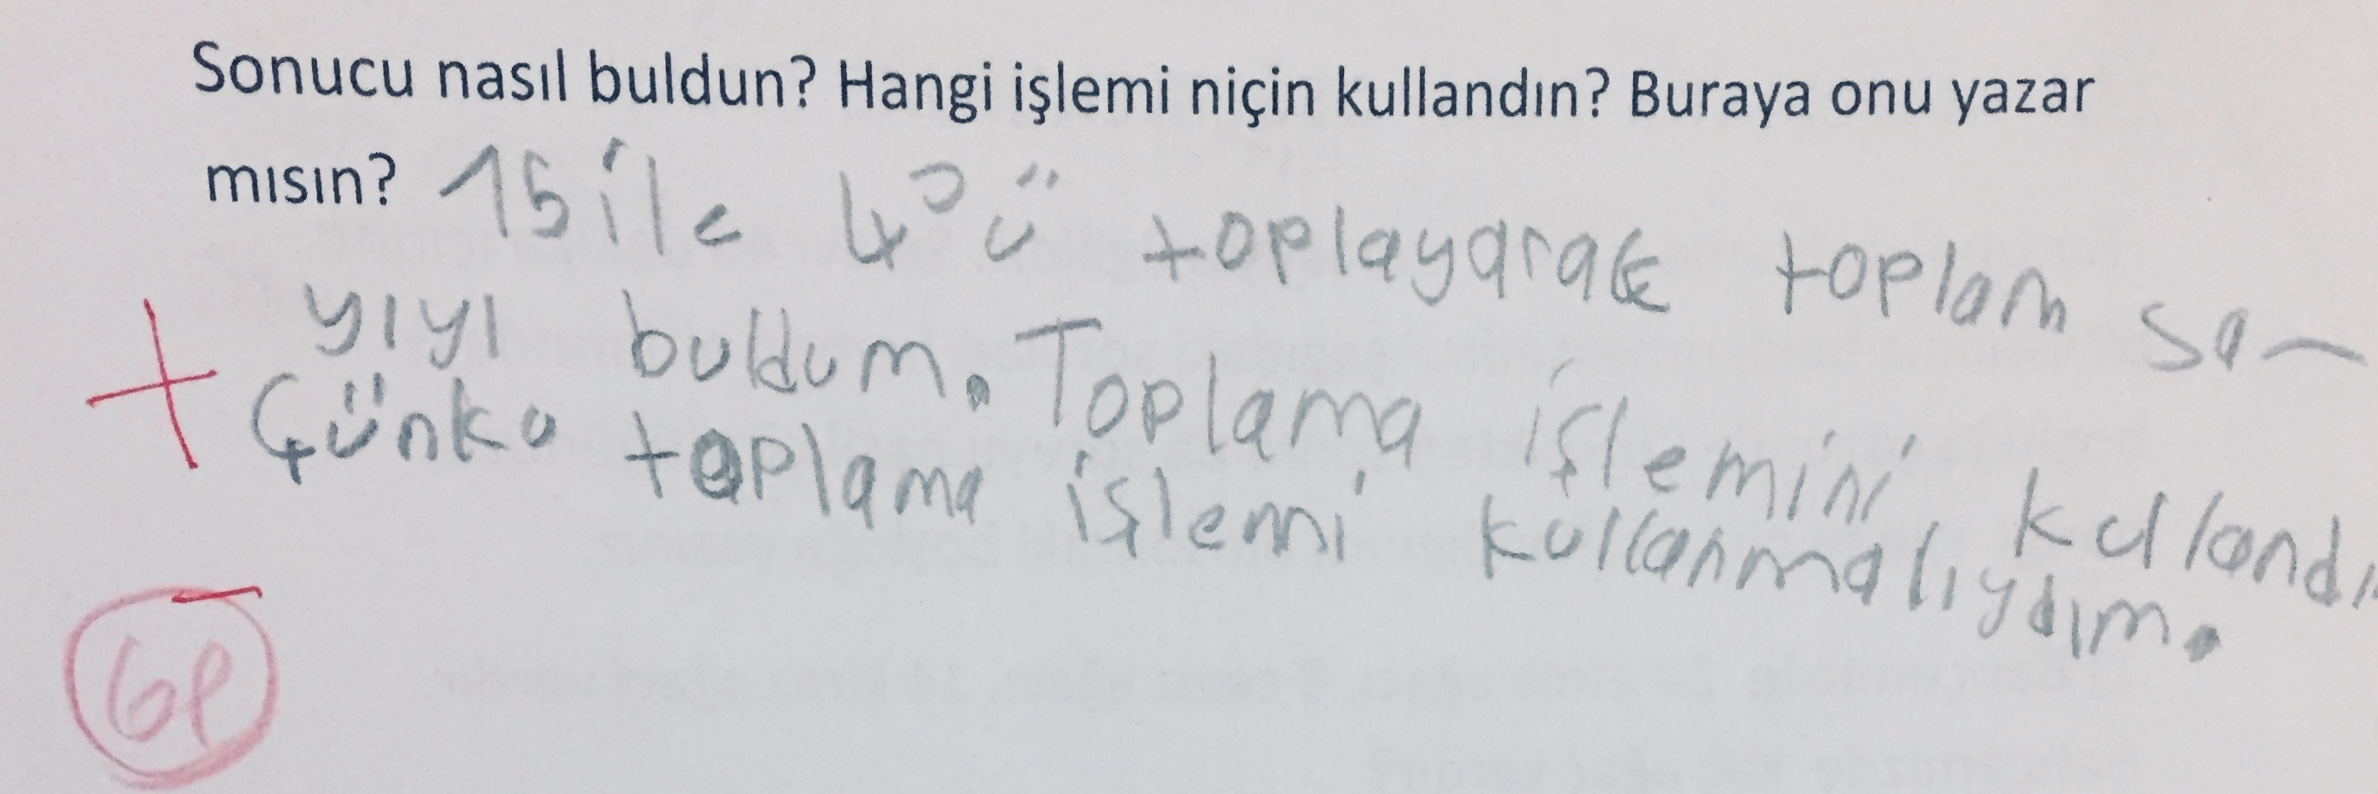 Sonucu nasıl buldun? Hangi işlemi niçin kullandın? Buraya onu yazar
mısın? 15 ile 4'ü toplayarak toplam sa-
yıyı buldum. Toplama işlemini kullandı
Çünku toplama işlemi kullanmalıydım.
+
6P